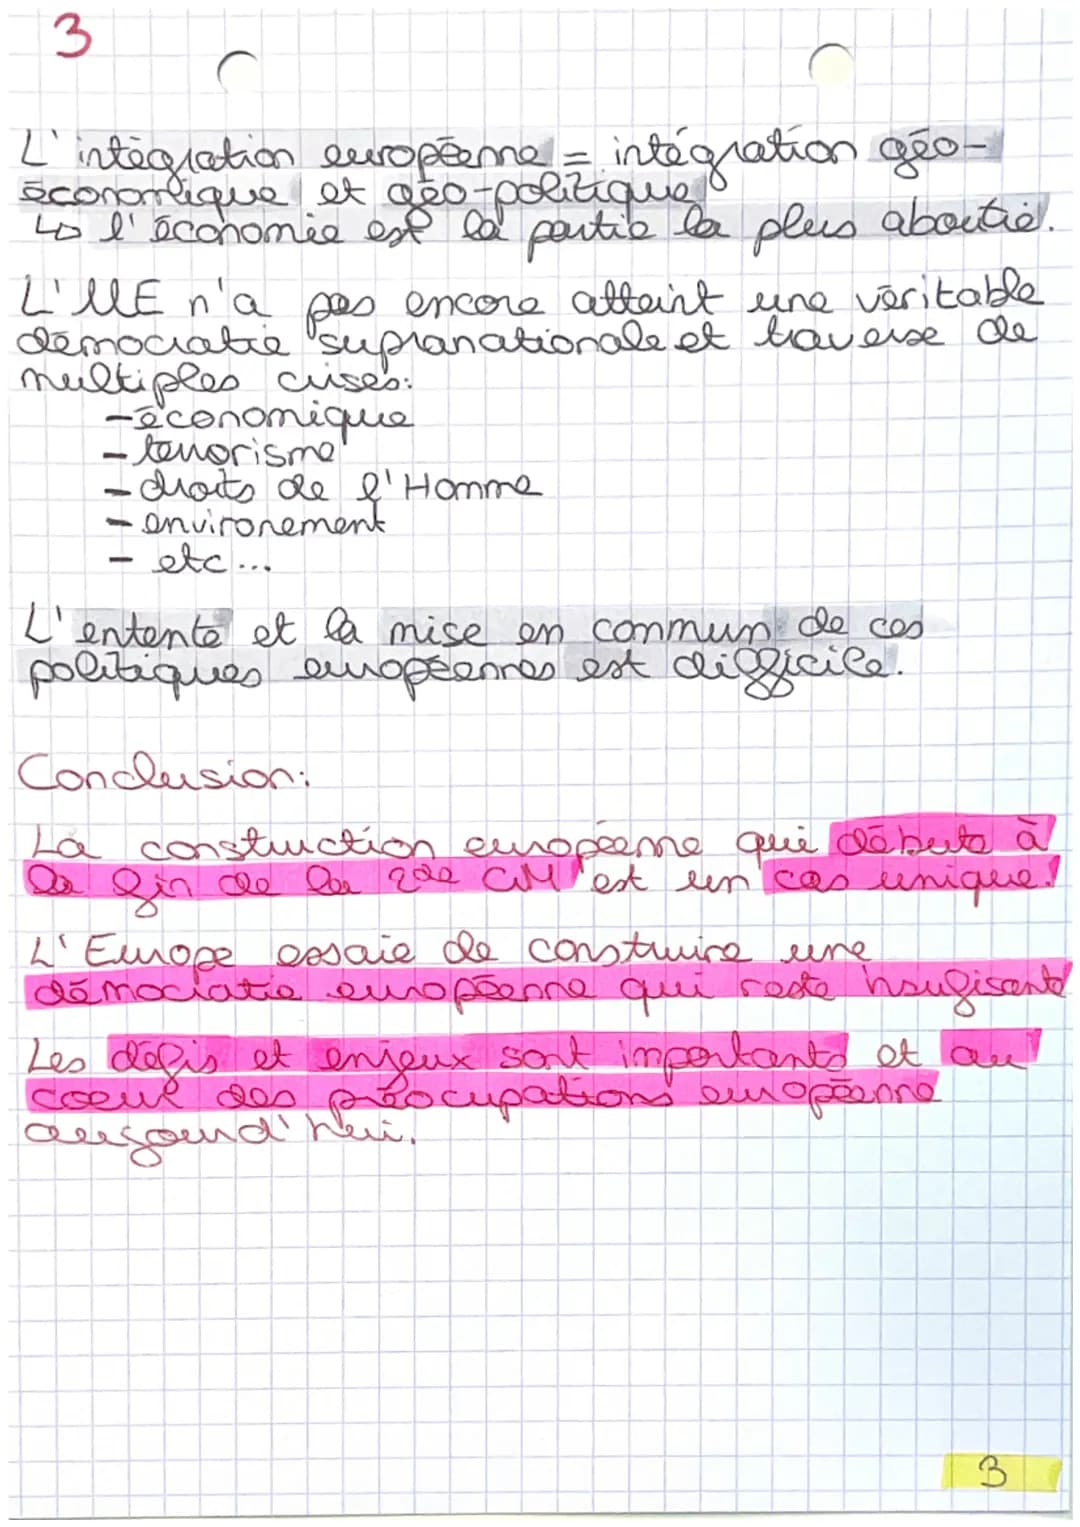 3
L'intégration européenne = intégration géo-
économique et géo-politique
↳ l'économie est la partie la plus aboutie.
L'UE n'a pas encore atteint une véritable
démocratie supranationale et traverse de
multiples crises:
-économique
- terrorisme
- droits de l'Homme
- environement
- etc...
L'entente et la mise en commun de ces
politiques européennes est difficile.
Conclusion:
La construction européenne qui débute à
la fin de la 2de GM est un cas unique.
L'Europe essaie de construire une
démocratie européenne qui reste insufisante
Les défis et enjeux sont importants et au
coeur des préocupations européenne
aujourd'hui.
3